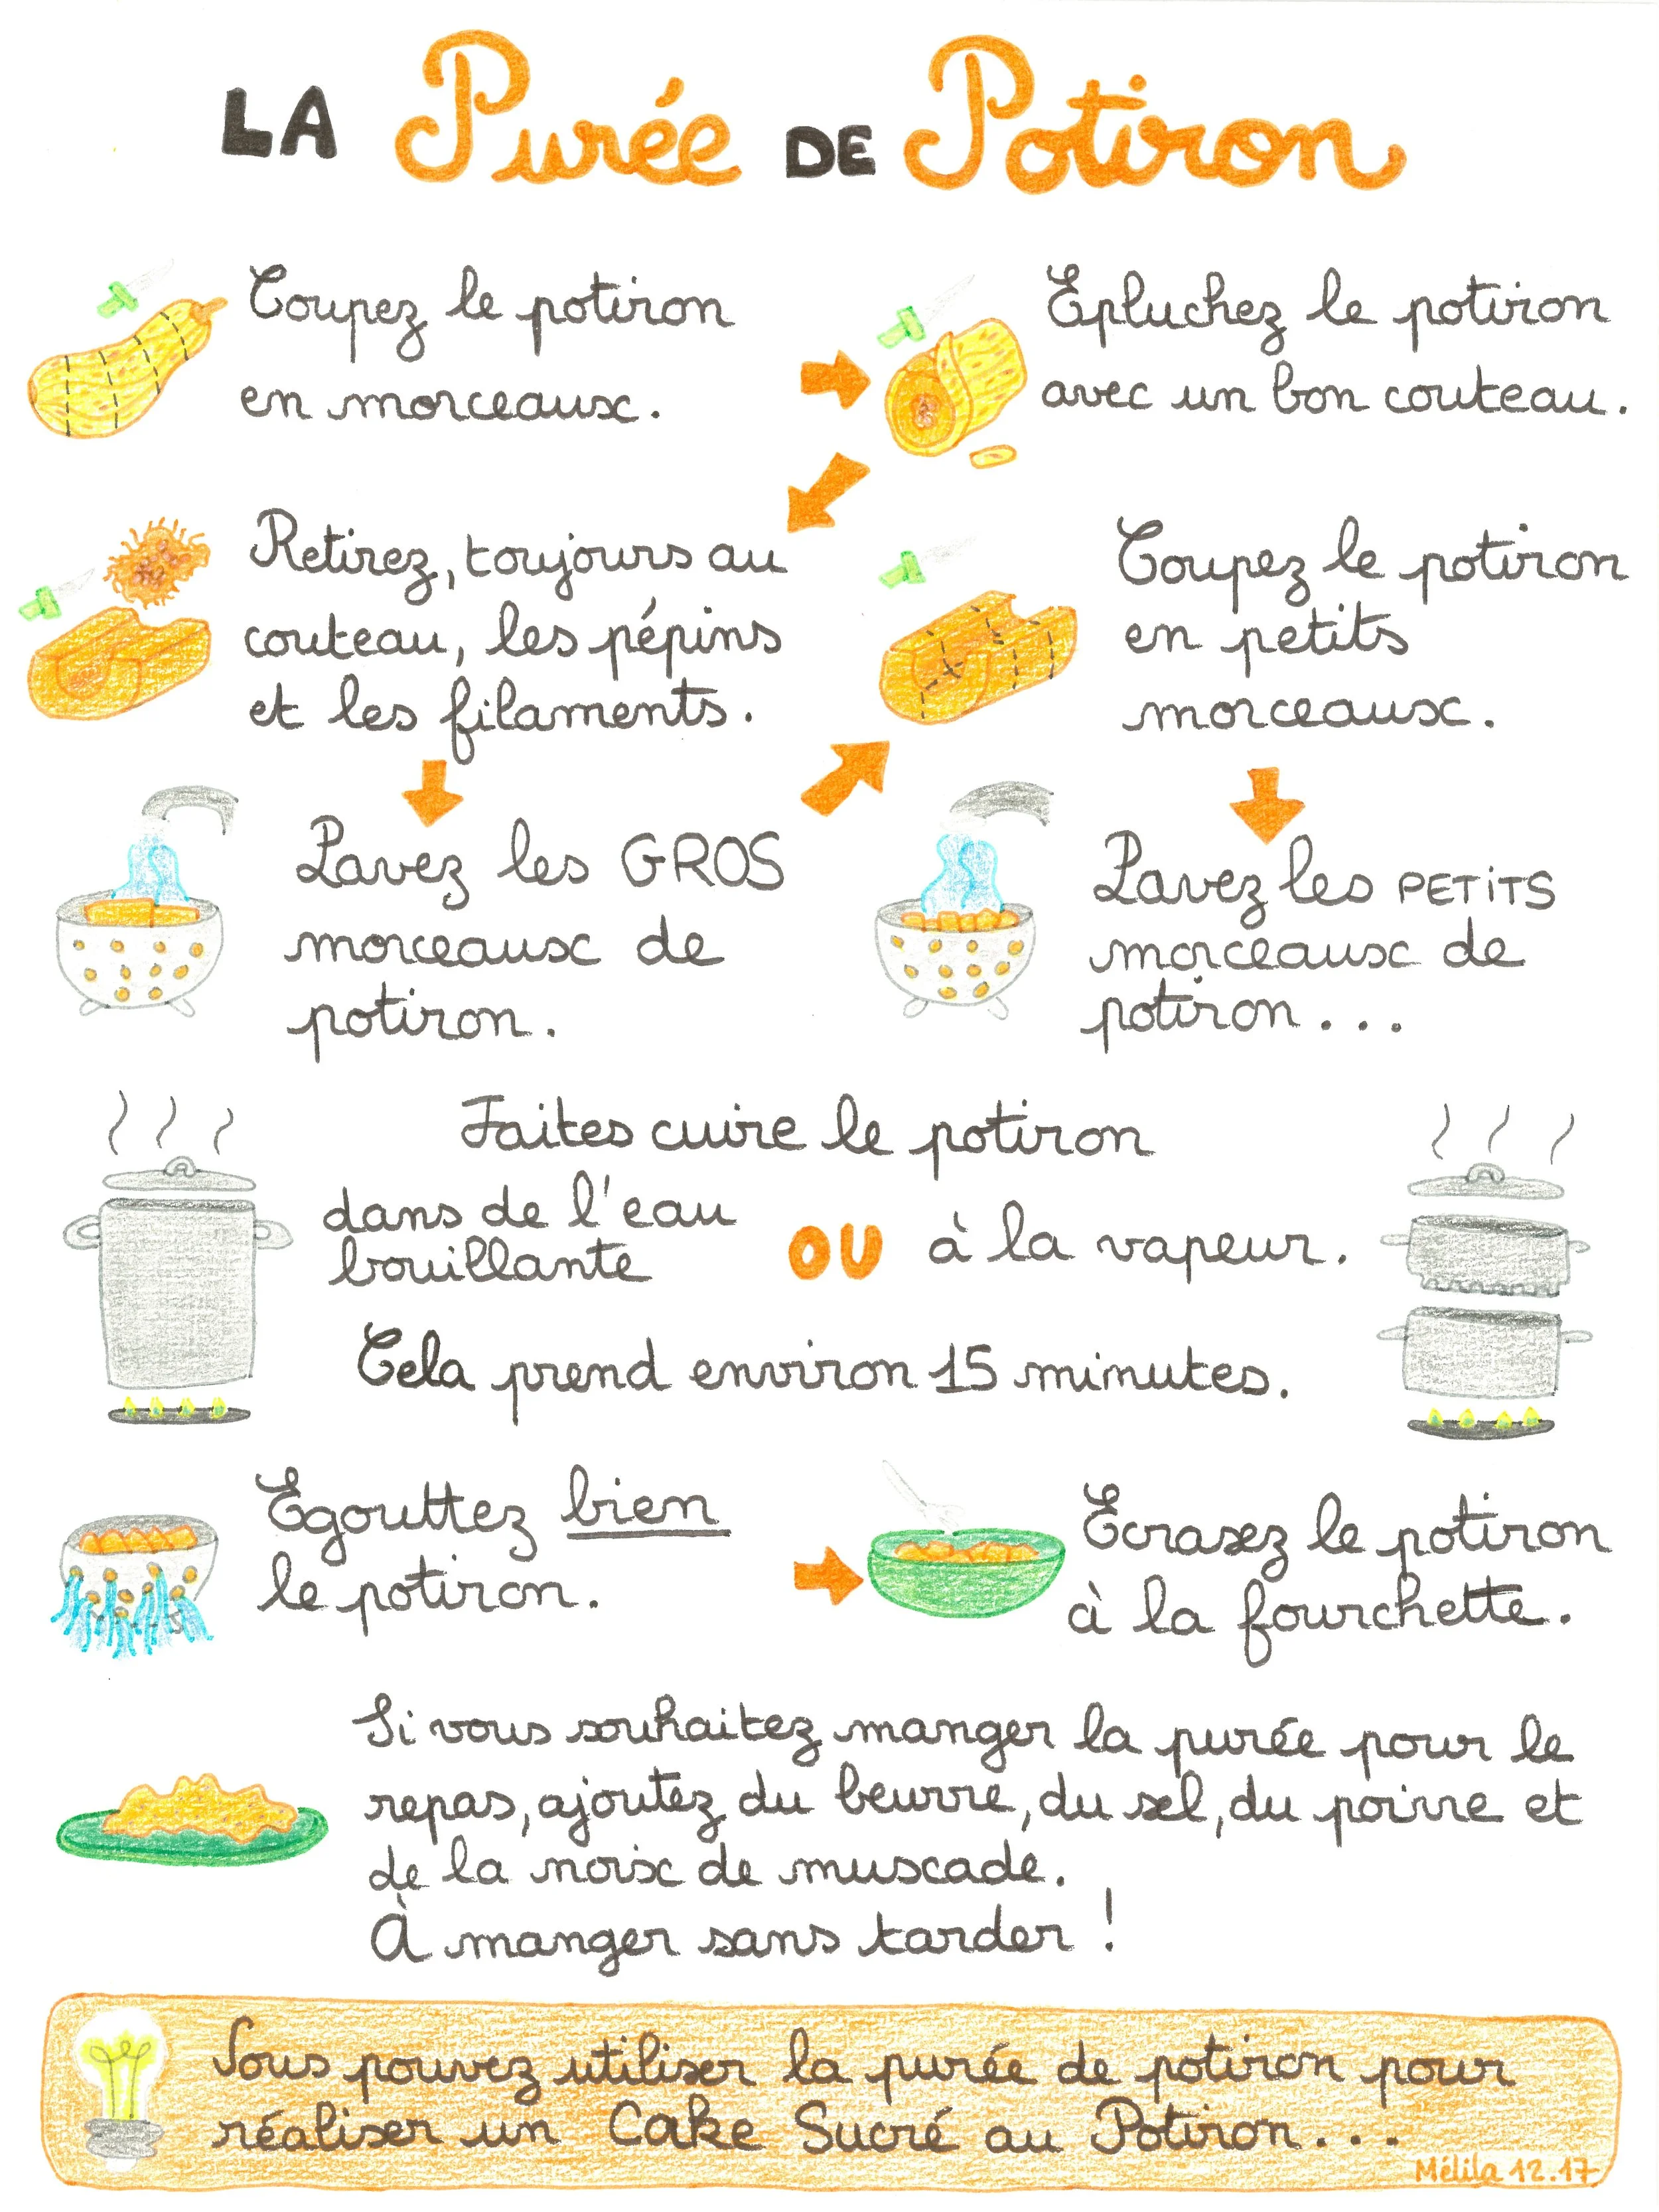 LA Purée DE Potiron
Coupez le potiron
en morceaux.
Épluchez le potiron
avec un bon couteau.
Retirez, toujours au
couteau, les pépins
et les filaments.
Lavez les GROS
morceaux de
potiron.
Coupez le potiron
en petits
morceaux.
Lavez les PETITS
morceaux de
potiron...
Faites cuire le potiron
dans de l'eau
bouillante
OU
à la vapeur.
Cela prend environ 15 minutes.
Égouttez bien
le potiron.
Écrasez le potiron
à la fourchette.
Si vous souhaitez manger la purée pour le
repas, ajoutez du beurre, du sel, du poivre et
de la noix de muscade.
À manger sans tarder !
Vous pouvez utiliser la purée de potiron pour
réaliser un Cake Sucré au Potiron...
Mélila 12.17